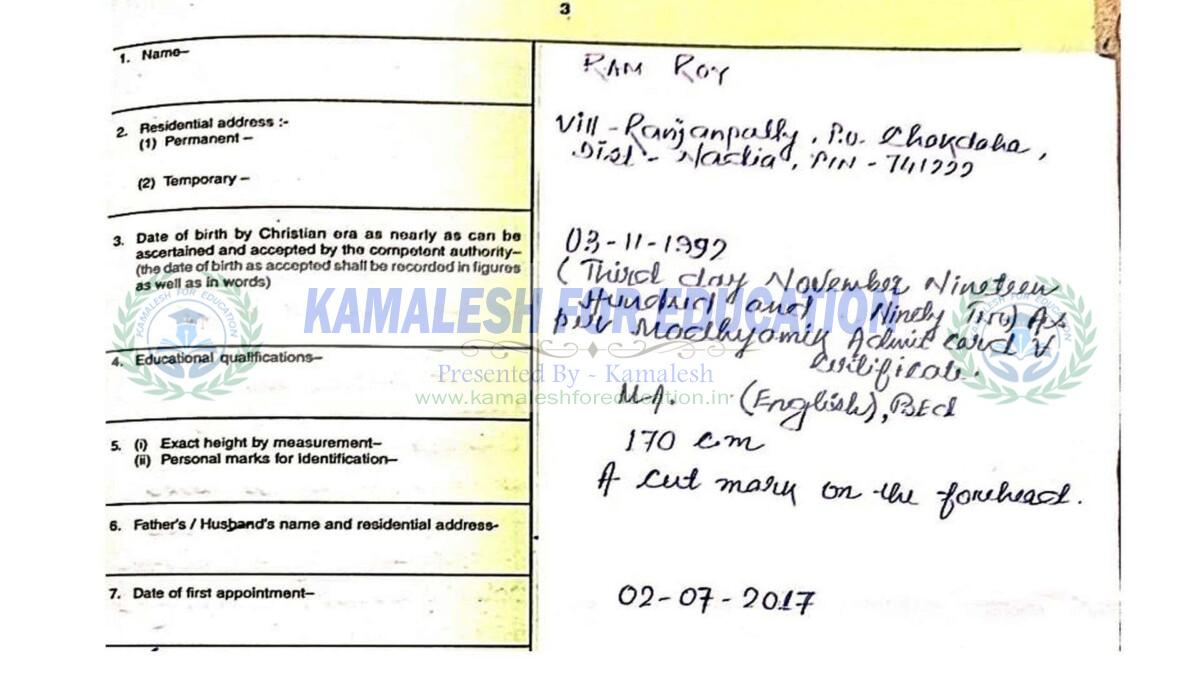 3
1. Name–
RAM ROY
2. Residential address :-
(1) Permanent –
Vill - Ranjanpally, P.O. Chakdaha,
Dist - Nadia, PIN - 741222
(2) Temporary –
3. Date of birth by Christian era as nearly as can be
ascertained and accepted by the competent authority–
(the date of birth as accepted shall be recorded in figures
as well as in words)
03-11-1992
(Third day November Nineteen
Hundred and Ninety Two) As
per Madhyamik Admit card &
Certificate.
KAMALESH FOR EDUCATION
Presented By - Kamalesh
www.kamaleshforeducation.in
4. Educational qualifications–
M.A. (English), BEd
5. (i) Exact height by measurement–
170 cm
(ii) Personal marks for identification–
A cut mark on the forehead.
6. Father's / Husband's name and residential address-
7. Date of first appointment–
02-07-2017